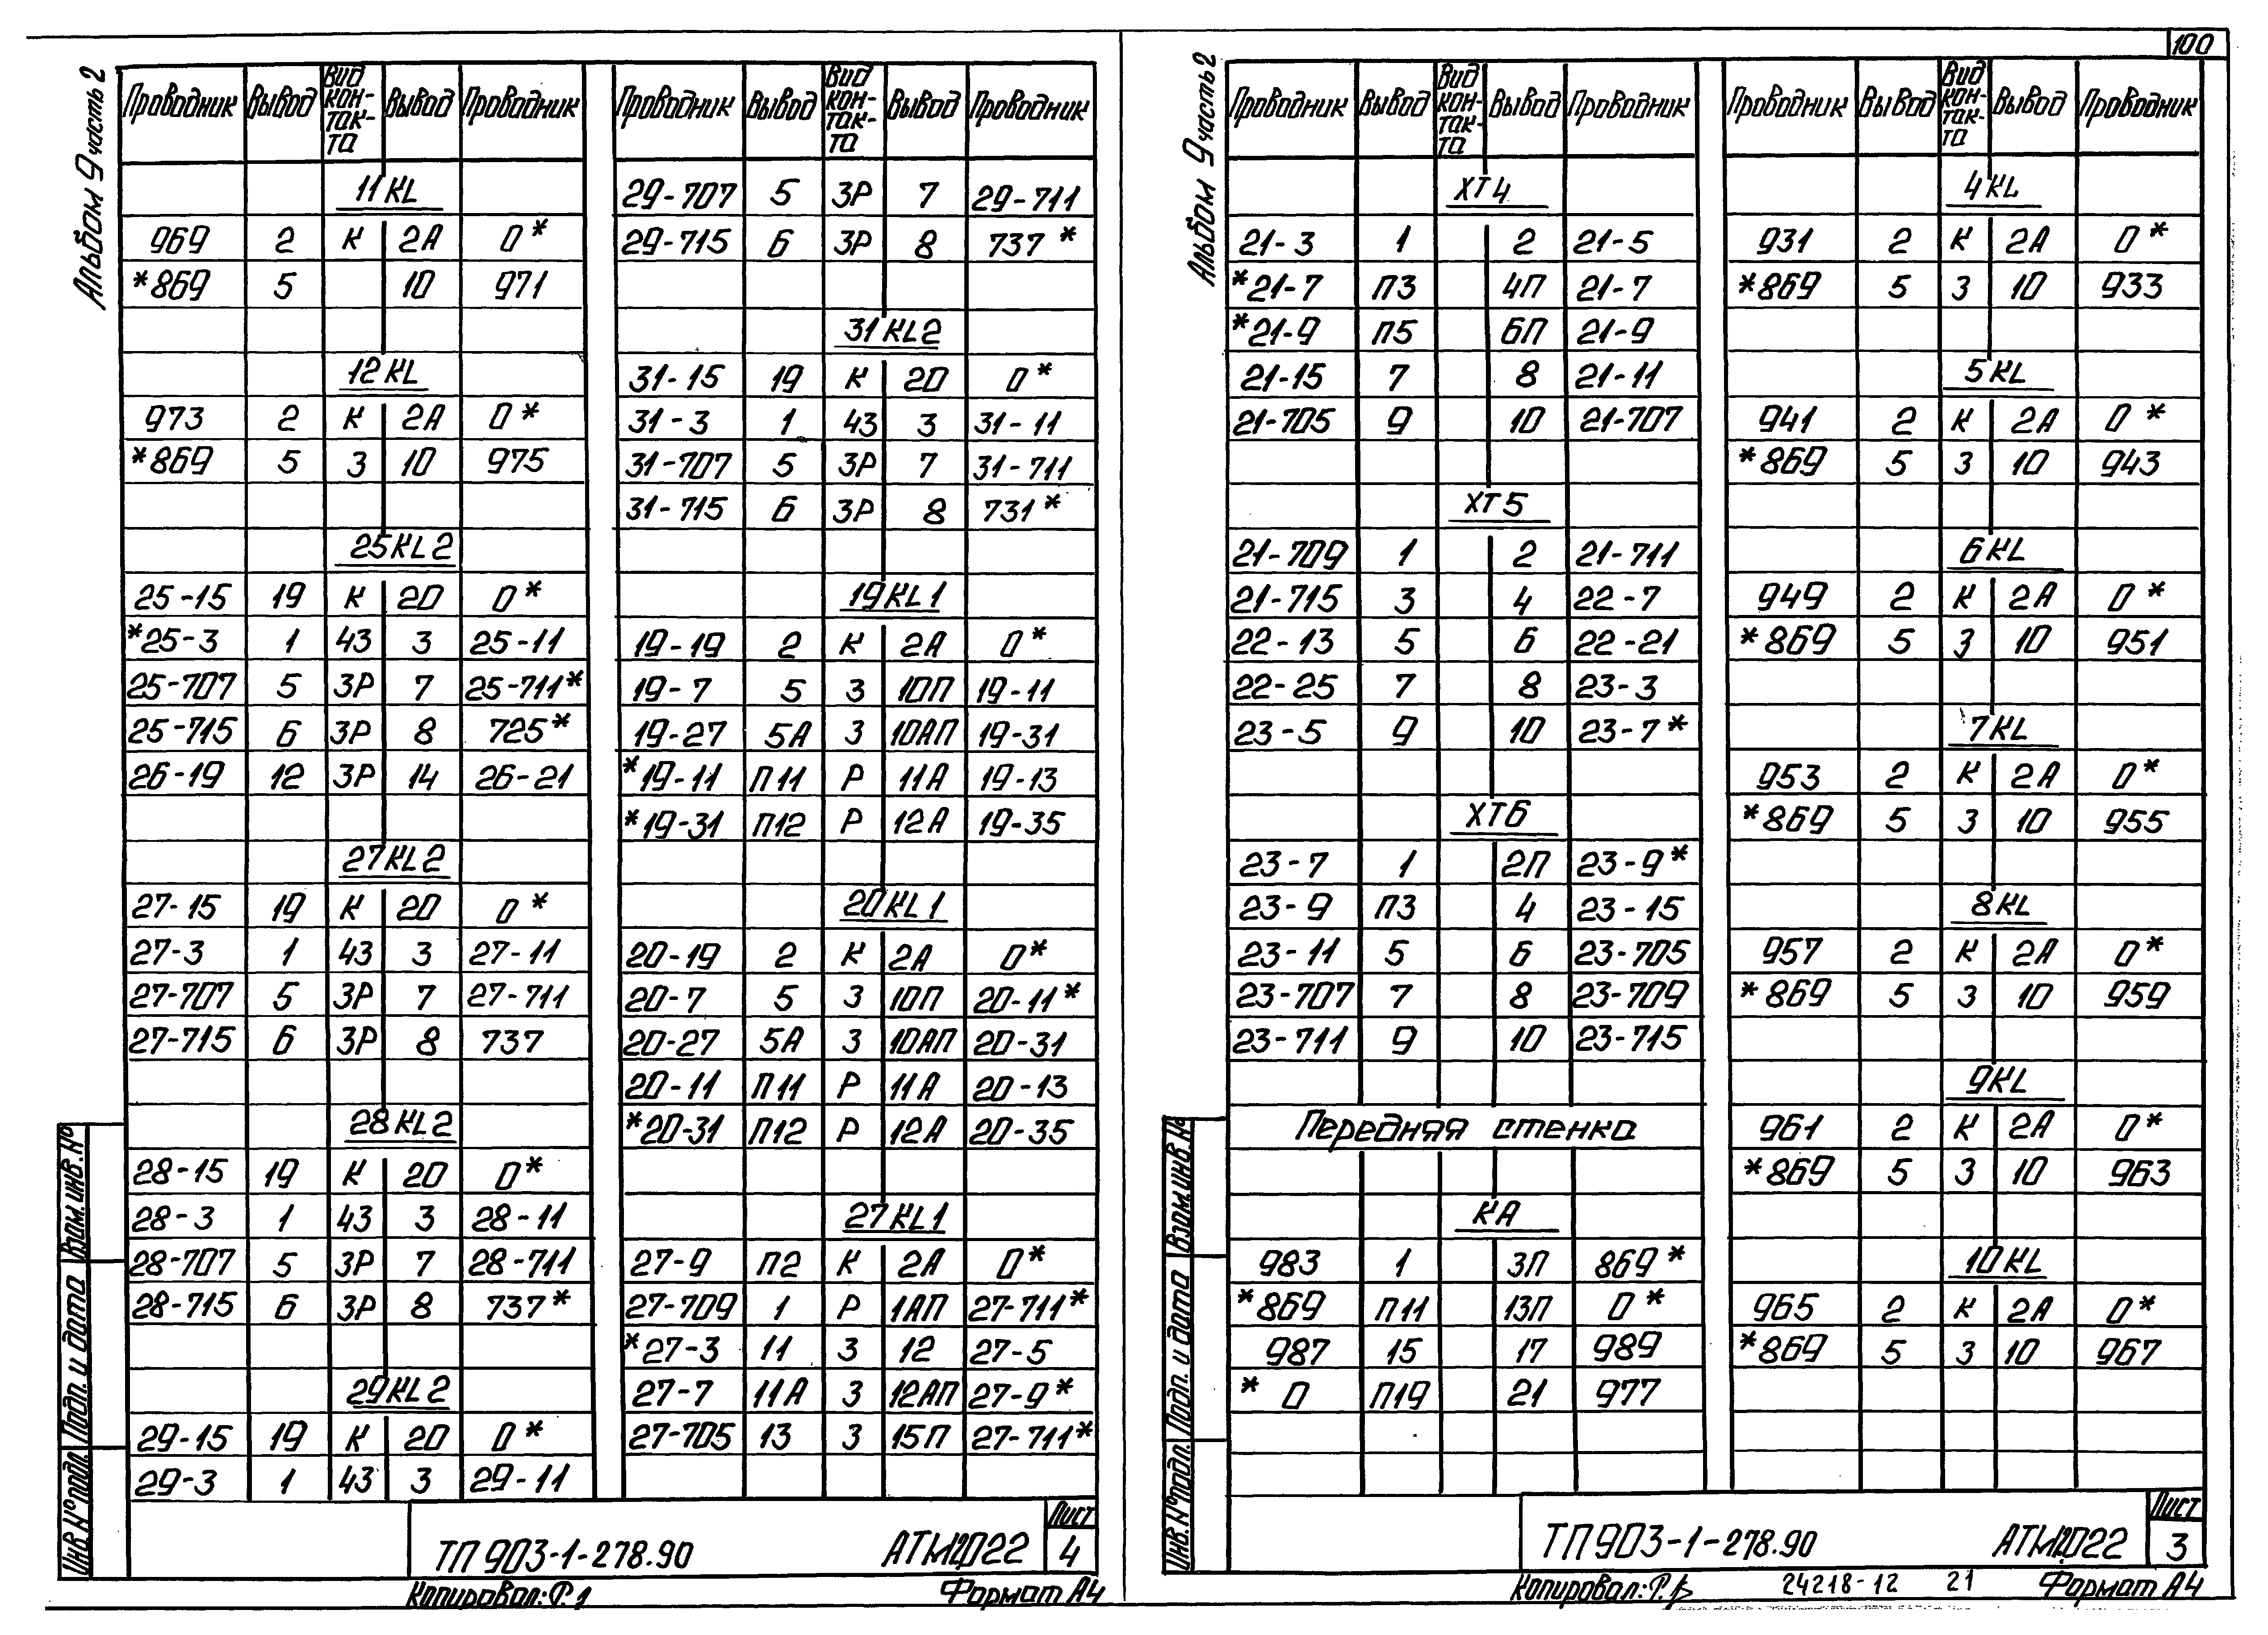 100
Альбом 9 часть 2
Проводник Вывод Вид кон-так-та Вывод Проводник
11KL
969 2 К 2А 0*
*869 5 10 971
12KL
973 2 К 2А 0*
*869 5 З 10 975
25KL2
25-15 19 К 20 0*
*25-3 1 43 3 25-11
25-707 5 ЗР 7 25-711*
25-715 6 ЗР 8 725*
26-19 12 ЗР 14 26-21
27KL2
27-15 19 К 20 0*
27-3 1 43 3 27-11
27-707 5 ЗР 7 27-711
27-715 6 ЗР 8 737
28KL2
28-15 19 К 20 0*
28-3 1 43 3 28-11
28-707 5 ЗР 7 28-711
28-715 6 ЗР 8 737*
29KL2
29-15 19 К 20 0*
29-3 1 43 3 29-11
Проводник Вывод Вид кон-так-та Вывод Проводник
29-707 5 ЗР 7 29-711
29-715 6 ЗР 8 737*
31KL2
31-15 19 К 20 0*
31-3 1 43 3 31-11
31-707 5 ЗР 7 31-711
31-715 6 ЗР 8 731*
19KL1
19-19 2 К 2А 0*
19-7 5 З 10П 19-11
19-27 5А З 10АП 19-31
*19-11 П11 Р 11А 19-13
*19-31 П12 Р 12А 19-35
20KL1
20-19 2 К 2А 0*
20-7 5 З 10П 20-11*
20-27 5А З 10АП 20-31
20-11 П11 Р 11А 20-13
*20-31 П12 Р 12А 20-35
27KL1
27-9 П2 К 2А 0*
27-709 1 Р 1АП 27-711*
*27-3 11 З 12 27-5
27-7 11А З 12АП 27-9*
27-705 13 З 15П 27-711*
Инв.№подл. Подп. и дата Взам.инв.№
ТП 903-1-278.90 АТМ2022
Лист
4
Копировал: Формат А4
Альбом 9 часть 2
Проводник Вывод Вид кон-так-та Вывод Проводник
ХТ4
21-3 1 2 21-5
*21-7 П3 4П 21-7
*21-9 П5 6П 21-9
21-15 7 8 21-11
21-705 9 10 21-707
ХТ5
21-709 1 2 21-711
21-715 3 4 22-7
22-13 5 6 22-21
22-25 7 8 23-3
23-5 9 10 23-7*
ХТ6
23-7 1 2П 23-9*
23-9 П3 4 23-15
23-11 5 6 23-705
23-707 7 8 23-709
23-711 9 10 23-715
Передняя стенка
КА
983 1 3П 869*
*869 П11 13П 0*
987 15 17 989
*0 П19 21 977
Проводник Вывод Вид кон-так-та Вывод Проводник
4KL
931 2 К 2А 0*
*869 5 З 10 933
5KL
941 2 К 2А 0*
*869 5 З 10 943
6KL
949 2 К 2А 0*
*869 5 З 10 951
7KL
953 2 К 2А 0*
*869 5 З 10 955
8KL
957 2 К 2А 0*
*869 5 З 10 959
9KL
961 2 К 2А 0*
*869 5 З 10 963
10KL
965 2 К 2А 0*
*869 5 З 10 967
Инв.№подл. Подп. и дата Взам.инв.№
ТП 903-1-278.90 АТМ2022
Лист
3
Копировал: 24218-12 21 Формат А4